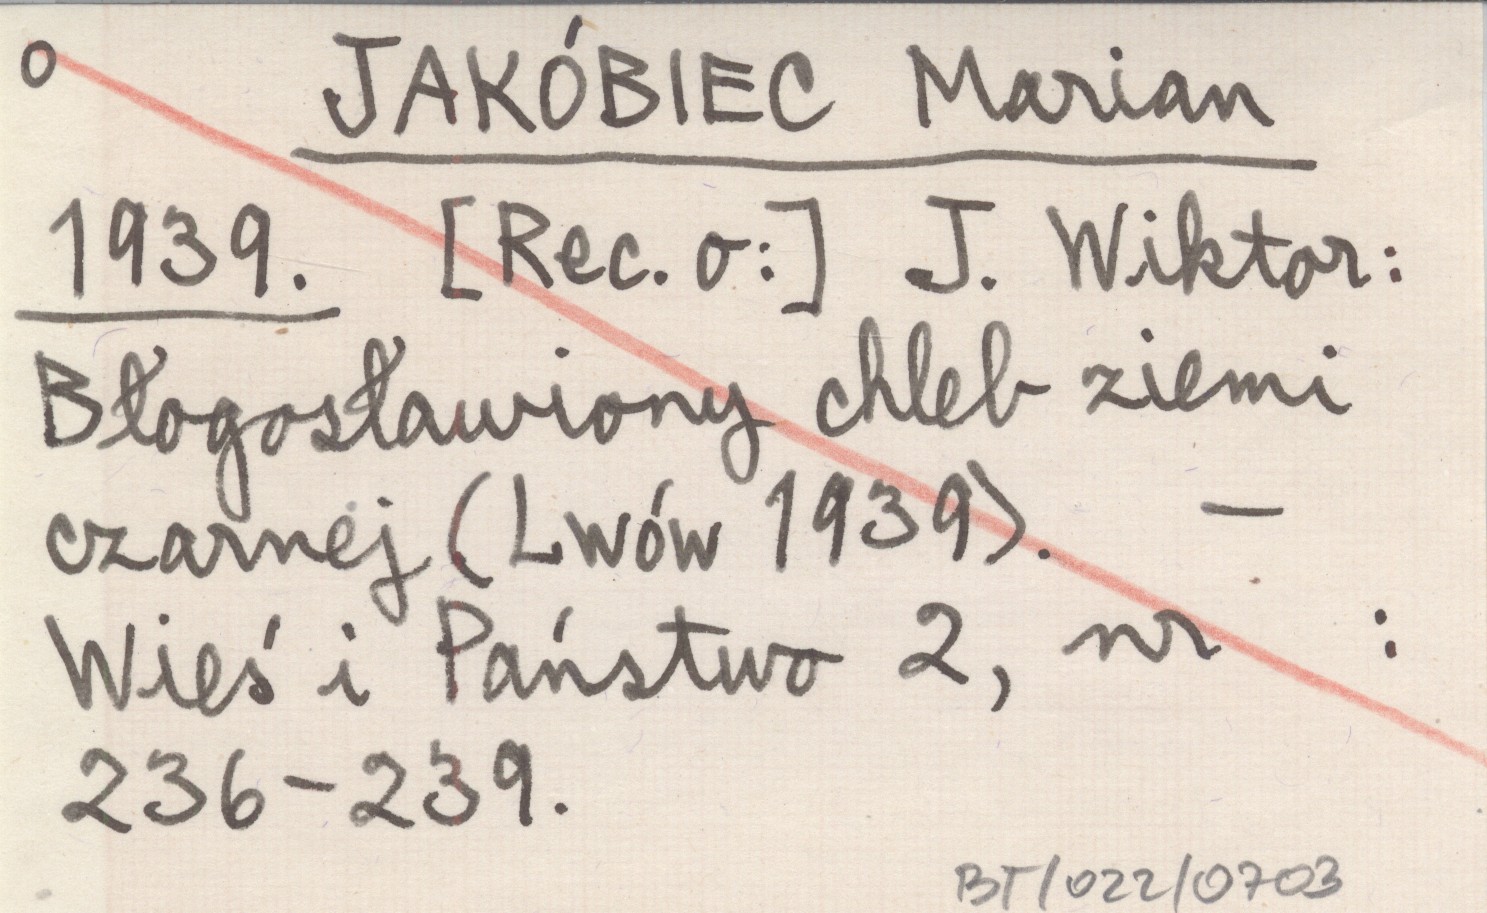 o JAKÓBIEC Marian
1939. [Rec. o:] J. Wiktor:
Błogosławiony chleb ziemi
czarnej (Lwów 1939). –
Wieś i Państwo 2, nr :
236-239.
BT/022/0703